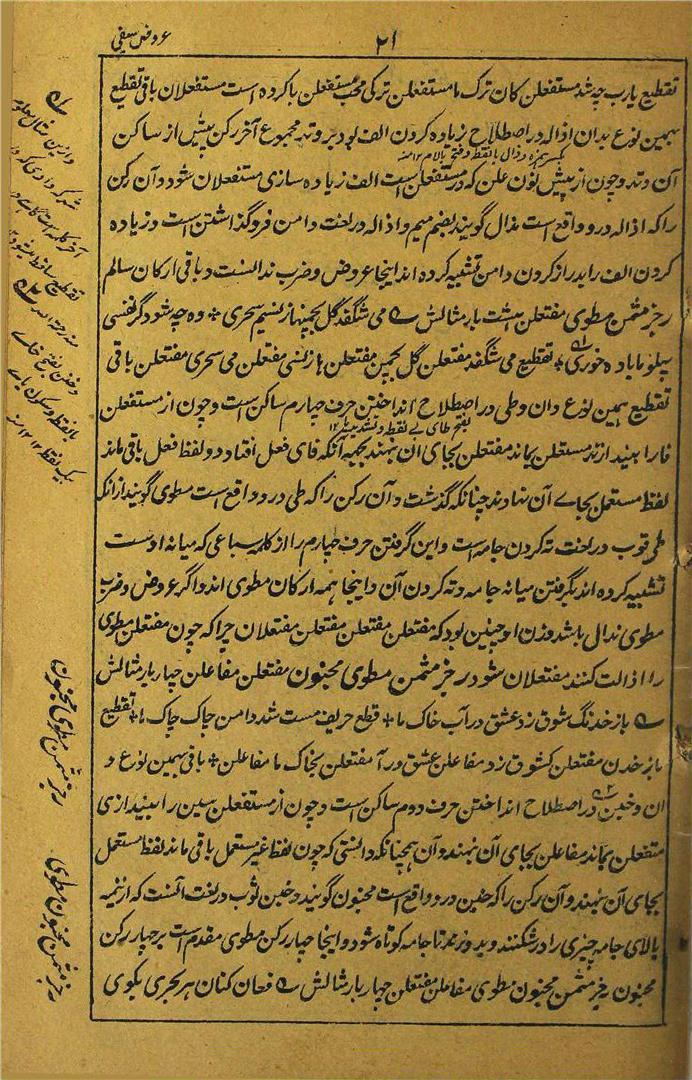 ۲۱
عروض سیفی
تقطیع یارب چه شد مستفعلن کان ترک ما مستفعلن ترکی محب مستفعلن با کرده است مستفعلان باقی تقطیع
بهمین نوع بدان اذاله در اصطلاح زیاده کردن الف بود بر وتد مجموع آخر رکن پیش از ساکن
بکسر همزه و ذال با نقطه و فتح لام ۱۲ منه
آن وتد و چون از پیش نون علن که در مستفعلن است الف زیاده سازی مستفعلان شود و آن رکن
را که اذاله درو واقع است مذال گویند بضم میم و اذاله در لغت دامن فروگذاشتن است و زیاده
کردن الف را بدراز کردن دامن تشبیه کرده اند اینجا عروض و ضرب مذالست و باقی ارکان سالم
رجز مثمن مطوی مفتعلن هشت بار مثالش می شگفد گل بچمنها ز نسیم سحری وه چه شود گر نفسی
پهلو ما باده خوری تقطیع می شگفد مفتعلن گل بچمن مفتعلن ها ز نسی مفتعلن می سحری مفتعلن باقی
تقطیع بهمین نوع دان و طی در اصطلاح انداختن حرف چهارم ساکن است و چون از مستفعلن
بفتح طای بی نقطه و تشدید یا ۱۲
فا را بیندازند مستعلن بماند مفتعلن بجای آن بنهند بجهه آنکه فای فعل افتاد و دو لفظ فعل باقی ماند
لفظ مستعمل بجای آن نهادند چنانکه گذشت و آن رکن را که طی درو واقع است مطوی گویند از آنکه
طی ثوب در لغت ته کردن جامه است و این گرفتن حرف چهارم را از کلمه سباعی که میانه اوست
تشبیه کرده اند بگرفتن میانه جامه و ته کردن آن و اینجا همه ارکان مطوی اند و اگر عروض و ضرب
مطوی مذال باشد وزن او چنین بود که مفتعلن مفتعلن مفتعلن مفتعلان چرا که چون مفتعلن مطوی
را اذالت کنند مفتعلان شود رجز مثمن مطوی مخبون مفتعلن مفاعلن چهار بار مثالش
باز خدنگ شوق زد عشق در آب خاک ما قطع حریف مست شد دامن چاک چاک ما تقطیع
باز خدن مفتعلن کشوق زد مفاعلن عشق در آ مفتعلن بخاک ما مفاعلن باقی بهمین نوع د
ان و خبن در اصطلاح انداختن حرف دوم ساکن است و چون از مستفعلن سین را بیندازی
متفعلن بماند مفاعلن بجای آن بنهند و آن همچنانکه دانستی که چون لفظ غیر مستعمل باقی ماند لفظ مستعمل
بجای آن بنهند و آن رکن را که خبن درو واقع است مخبون گویند و خبن ثوب در لغت آنست که از نیمه
بالای جامه چیزی را در شکنند و بدوزند تا جامه کوتاه شود و اینجا چهار رکن مطوی مقدم است بر چهار رکن
مخبون رجز مثمن مخبون مطوی مفاعلن مفتعلن چهار بار مثالش فغان کنان هر سحری بکوی
وازین مثال معلوم
آخر کلمه
تقطیع ساقط
و خبن بفتح خای
با نقطه و سکون بای
یک نقطه ۱۲ منه
رجز مثمن مطوی مخبون
رجز مثمن مخبون مطوی